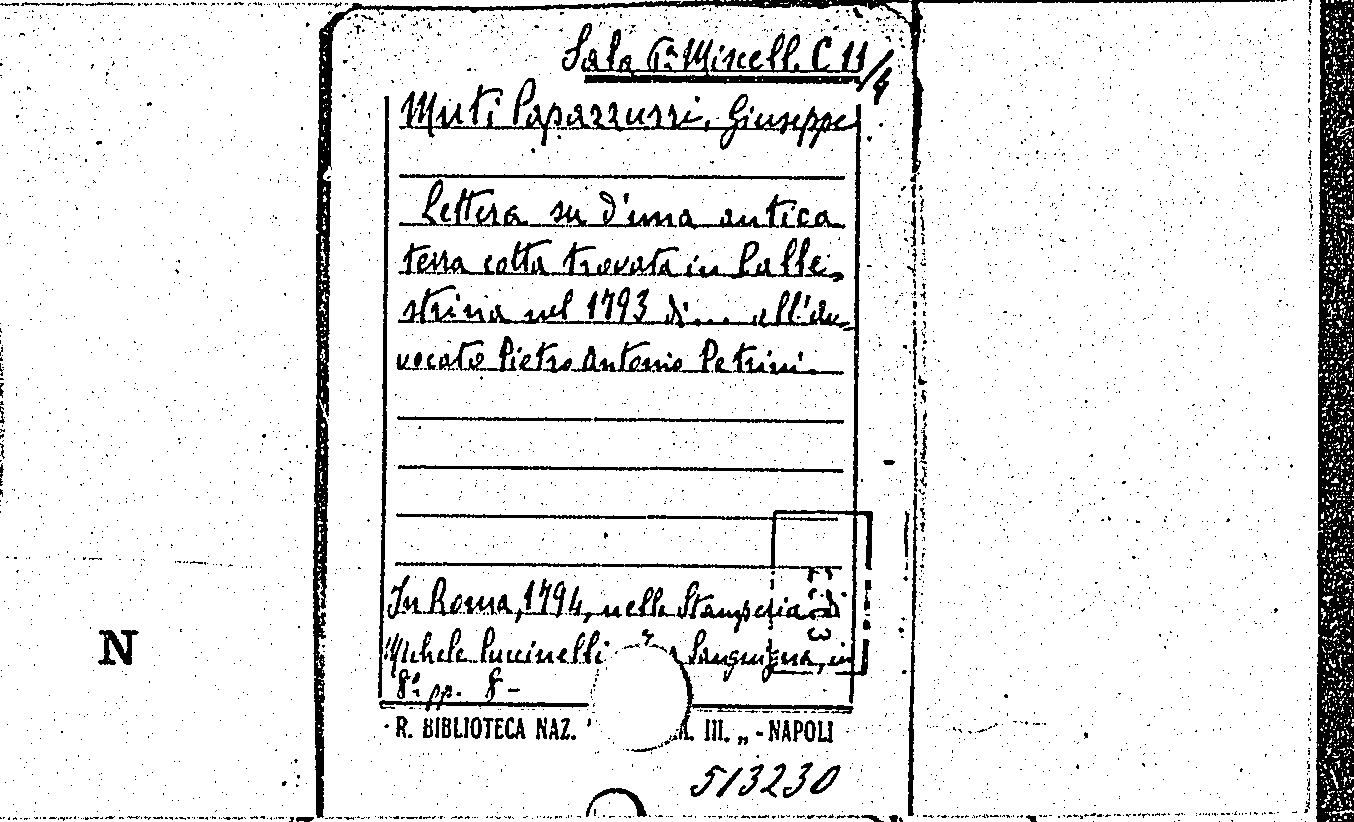 Sala 6ª Miscell. C 11/4
Muti Papazzurri, Giuseppe
Lettera su d'una antica
terra cotta trovata in Palle-
strina nel 1793 di... all'av-
vocato Pietro Antonio Petrini.
In Roma, 1794, nella Stamperia di
Michele Puccinelli a Sanguigna, in
8º pp. 8-
R. BIBLIOTECA NAZ. A. III. „ - NAPOLI
N
513230